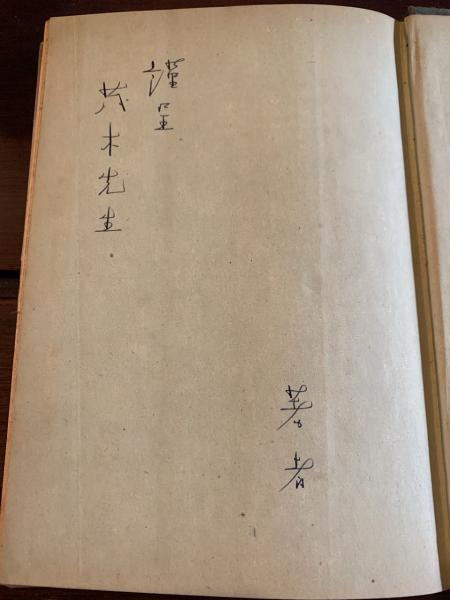 謹呈
茂木先生
著者